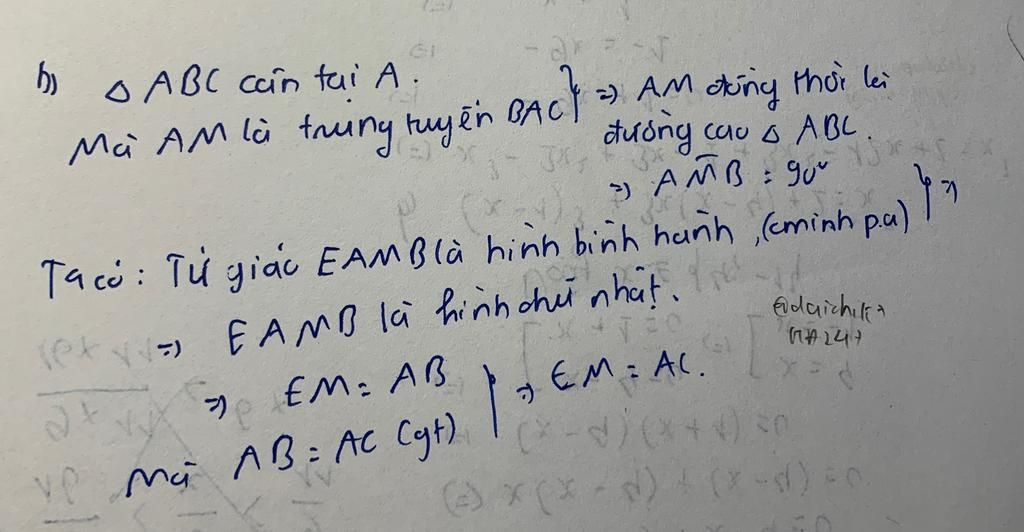 b) △ ABC cân tại A.
Mà AM là trung tuyến BAC } => AM đồng thời là
đường cao △ ABC.
=> AMB = 90°
Ta có: Tứ giác EAMB là hình bình hành, (cminh p.a) } =>
=> EAMB là hình chữ nhật.
=> EM = AB
Mà AB = AC (gt) } => EM = AC.